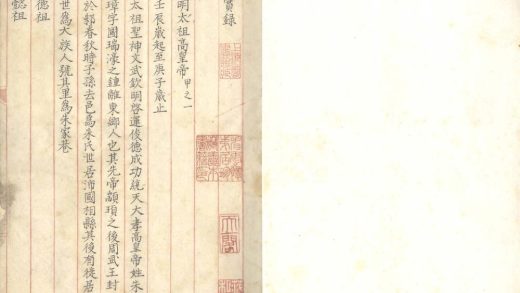 實錄
明太祖高皇帝 甲之一
壬辰歲起至庚子歲止
太祖聖神文武欽明啓運俊德成功統天大孝高皇帝姓朱
璋字國瑞濠之鍾離東鄉人也其先帝顓頊之後周武王封
於邾春秋時子孫去邑爲朱氏世居沛國相縣其後有徙居
世爲大族人號其里爲朱家巷
德祖
懿祖